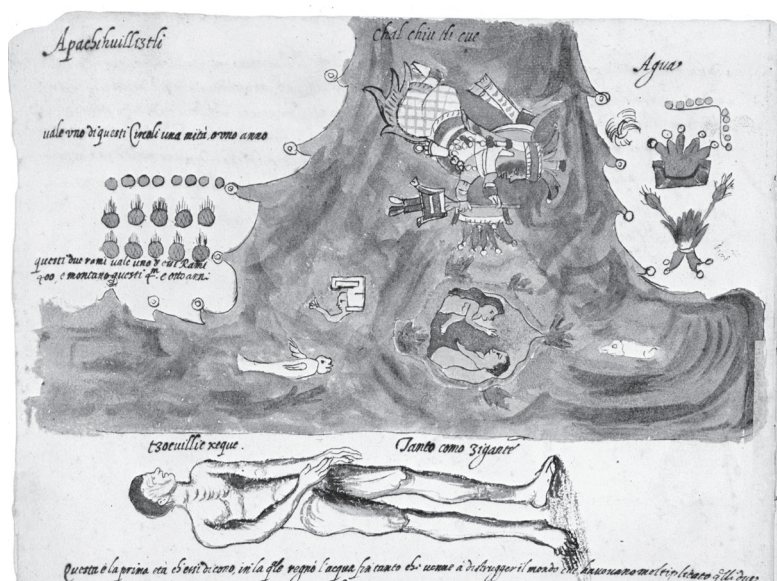 Apachihuiliztli
Chal chiu tli cue
Agua
vale vno di questi Circoli una mità, o vno anno
questi due rami vale uno d essi Rami
400, e montano questi 4m. e otto ann.
tzocuillic xeque.
Tanto como zigante
Questa è la prima età ch'essi dicono, in la qle regno l'acqua fin tanto che venne à distrugger il mondo